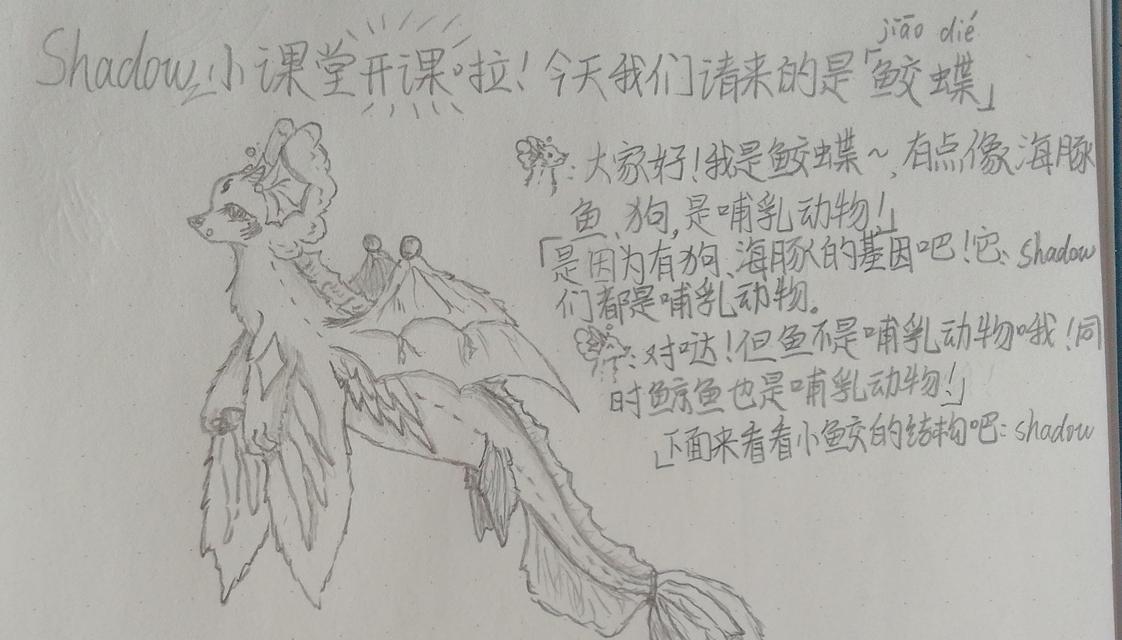 jiāo dié
Shadow小课堂开课啦!今天我们请来的是「鲛蝶」
:大家好!我是鲛蝶~,有点像海豚
鱼、狗,是哺乳动物!」
「是因为有狗、海豚的基因吧!它:shadow
们都是哺乳动物。
:对哒!但鱼不是哺乳动物哦!同
时鲸鱼也是哺乳动物!」
「下面来看看小鲛的结构吧:shadow